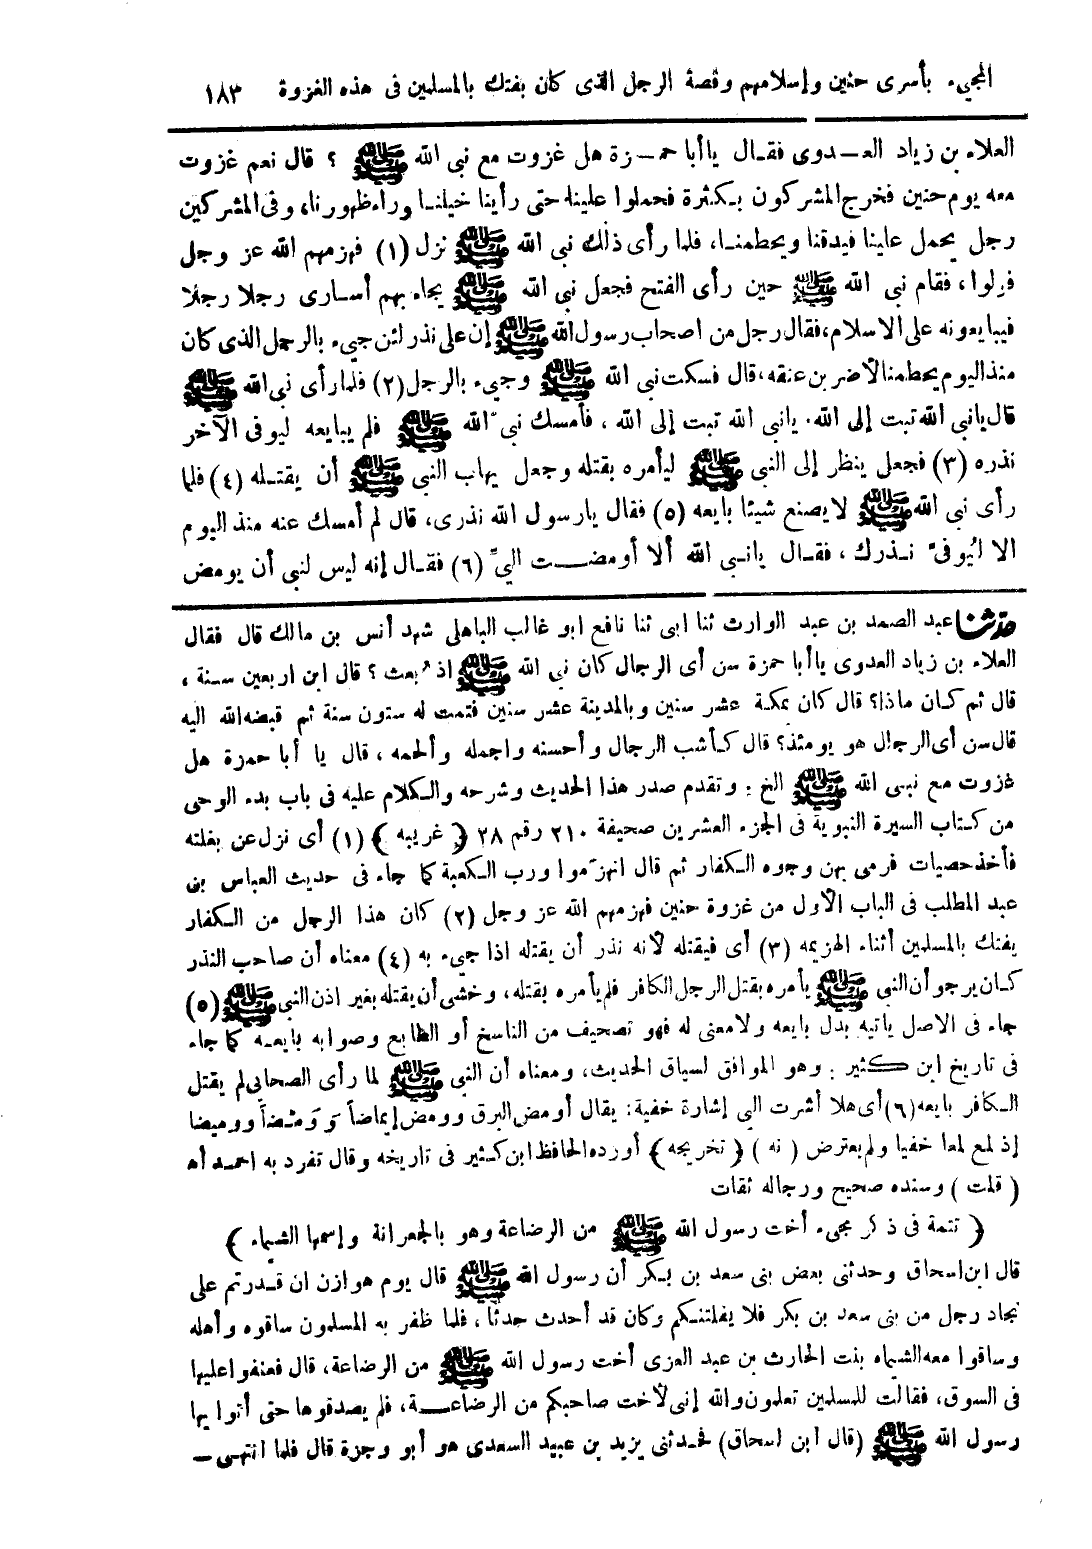 المجيء بأسرى حنين وإسلامهم وقصة الرجل الذى كان يفتك بالمسلمين فى هذه الغزوة ١٨٣
العلاء بن زياد العـــدوى فقـال ياأبا حمـــزة هل غزوت مع نبى الله ﷺ ؟ قال نعم غزوت
معه يوم حنين فخرج المشركون بـكثرة فحملوا علينا حتى رأينا خيلنـا وراء ظهورنا، وفى المشركين
رجل يحمل علينا فيدقنا ويحطمنـا، فلما رأى ذلك نبى الله ﷺ نزل (١) فهزمهم الله عز وجل
فولوا، فقام نبى الله ﷺ حين رأى الفتح فجعل نبى الله ﷺ يجاء بهم أسـارى رجلا رجلا
فيبايعونه على الاسلام، فقال رجل من اصحاب رسول الله ﷺ إن على نذر لئن جيء بالرجل الذى كان
منذ اليوم يحطمنا لأضربن عنقه، قال فسكت نبى الله ﷺ وجيء بالرجل (٢) فلما رأى نبى الله ﷺ
قال يانبى الله تبت إلى الله. يانبى الله تبت إلى الله ، فأمسك نبى الله ﷺ فلم يبايعه ليوفى الآخر
نذره (٣) فجعل ينظر إلى النبى ﷺ ليأمره بقتله وجعل يهاب النبى ﷺ أن يقتـله (٤) فلما
رأى نبى الله ﷺ لايصنع شيئا بايعه (٥) فقال يارسول الله نذرى، قال لم أمسك عنه منذ اليوم
الا ليُوفى نـذرك ، فقـال يانـبى الله ألا أومضــت اليّ (٦) فقـال إنه ليس لنبى أن يومض
حدثنا عبد الصمد بن عبد الوارث ثنا ابى ثنا نافع ابو غالب الباهلى شهد أنس بن مالك قال فقال
العلاء بن زياد العدوى ياأبا حمزة سن أى الرجال كان نبى الله ﷺ اذ بعث ؟ قال ابن اربعين سـنة ،
قال ثم كـان ماذا؟ قال كان بمكة عشر سنين وبالمدينة عشر سنين فتمت له ستون سنة ثم قبضه الله اليه
قال سن أى الرجال هو يومئذ؟ قال كـأشب الرجال وأحسنه واجمله وألحمه ، قال يا أبا حمزة هل
غزوت مع نبى الله ﷺ الخ : وتقدم صدر هذا الحديث وشرحه والـكلام عليه فى باب بدء الوحى
من كـتاب السيرة النبوية فى الجزء العشرين صحيفة ٢١٠ رقم ٢٨ ﴿ غريبه ﴾ (١) أى نزل عن بغلته
فأخذ حصيات فرمى بهن وجوه الـكفار ثم قال انهزموا ورب الـكعبة كما جاء فى حديث العباس بن
عبد المطلب فى الباب الأول من غزوة حنين فهزمهم الله عز وجل (٢) كان هذا الرجل من الـكفار
يفتك بالمسلمين أثناء الهزيمه (٣) أى فيقتله لأنه نذر أن يقتله اذا جيء به (٤) معناه أن صاحب النذر
كـان يرجو أن النبى ﷺ يأمره بقتل الرجل الكافر فلم يأمره بقتله، وخشى أن يقتله بغير اذن النبى ﷺ (٥)
جاء فى الاصل ياتيه بدل بايعه ولا معنى له فهو تصحيف من الناسخ أو الطابع وصوابه بايعـه كما جاء
فى تاريخ ابن كثير : وهو الموافق لسياق الحديث، ومعناه أن النبى ﷺ لما رأى الصحابى لم يقتل
الـكافر بايعه (٦) أى هلا أشرت الى إشارة خفية: يقال أومض البرق وومض إيماضاً وَوَمْضاً ووميضا
إذ لمع لمعا خفيا ولم يعترض ( نه ) ﴿ تخريجه ﴾ أورده الحافظ ابن كثير فى تاريخه وقال تفرد به احمـد أهـ
( قلت ) وسنده صحيح ورجاله ثقات
﴿ تتمة فى ذكر مجيء أخت رسول الله ﷺ من الرضاعة وهو بالجعرانة وإسمها الشيماء ﴾
قال ابن اسحاق وحدثنى بعض بنى سعد بن بـكر أن رسول الله ﷺ قال يوم هوازن ان قـدرتم على
نجاد رجل من بنى سعد بن بكر فلا يفلتنـكم وكان قد أحدث حدثًا ، فلما ظفر به المسلمون ساقوه وأهله
وساقوا معه الشيماء بنت الحارث بن عبد العزى أخت رسول الله ﷺ من الرضاعة، قال فعنفوا عليها
فى السوق، فقالت للمسلمين تعلمون والله إنى لأخت صاحبكم من الرضاعــة، فلم يصدقوها حتى أتوا بها
رسول الله ﷺ (قال ابن اسحاق) فحـدثنى يزيد بن عبيد السعدى هو أبو وجزة قال فلما انتهـى –